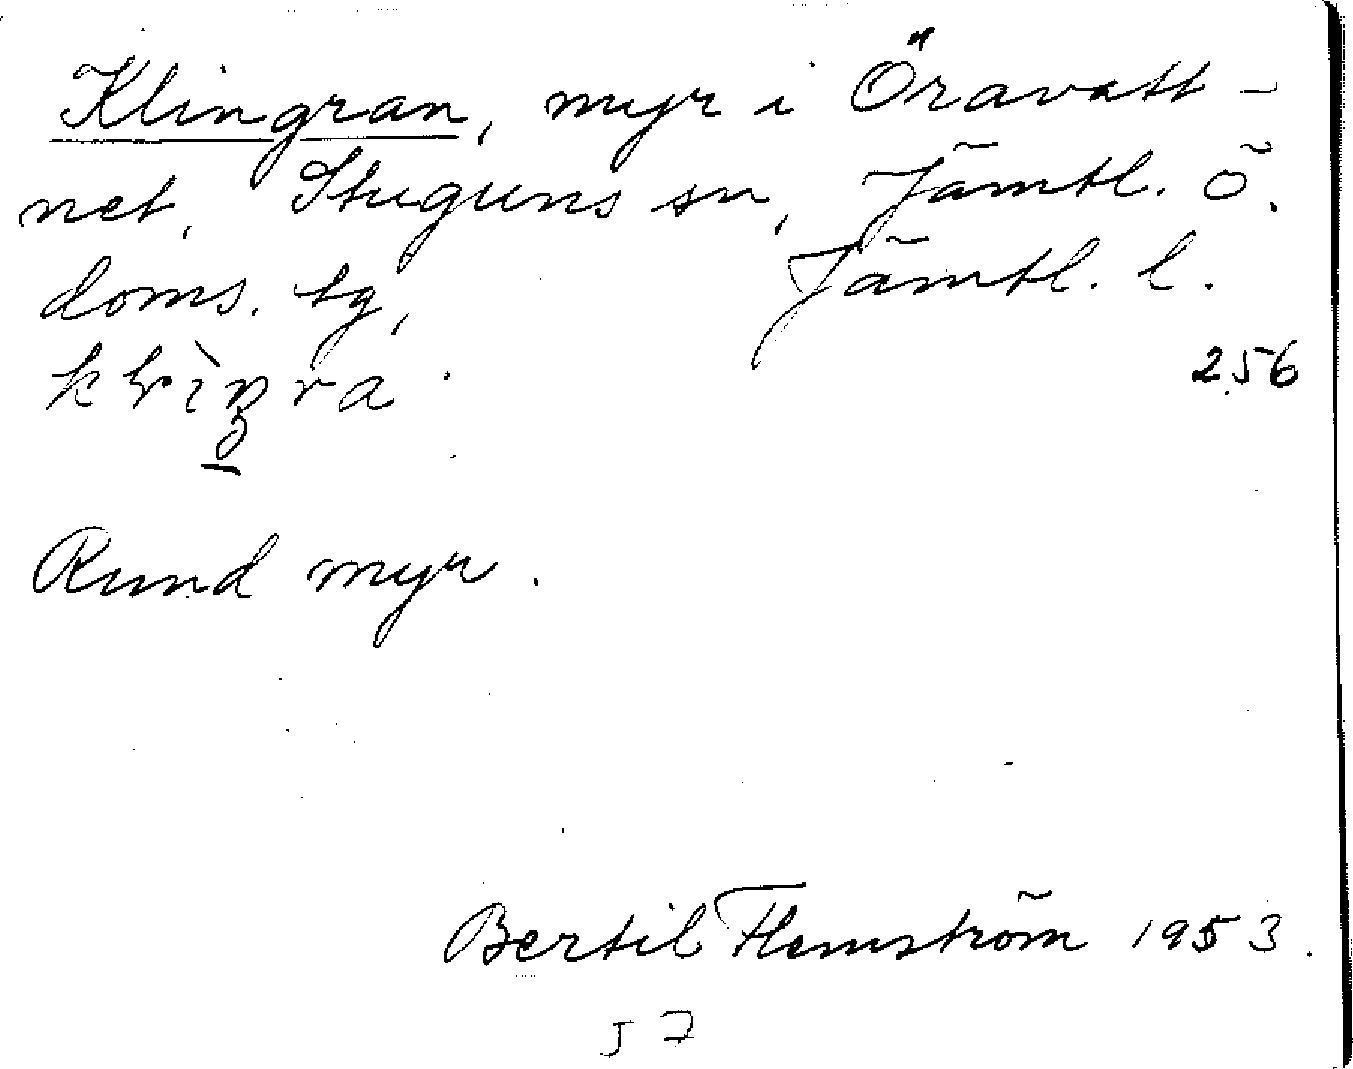 Klingran, myr i Öravatt-
net, Stuguns sn, Jämtl. ö.
doms. tg, Jämtl. l.
256
Rund myr.
Bertil Flemström 1953.
J 7